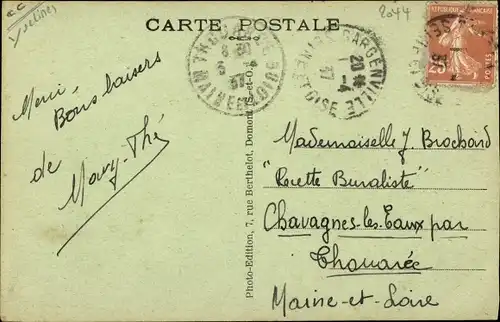 CC
Yvelines
CARTE POSTALE
2044
GARGENVILLE
20 *
1-4
37
OISE
25
Merci,
Bons baisers
de
Mary-Thé
Photo-Edition, 7, rue Berthelot, Domont (S.-et-O.)
Mademoiselle J. Brochard
"Recette Buraliste"
Chavagnes-les-Eaux par
Thouarcé
Maine-et-Loire